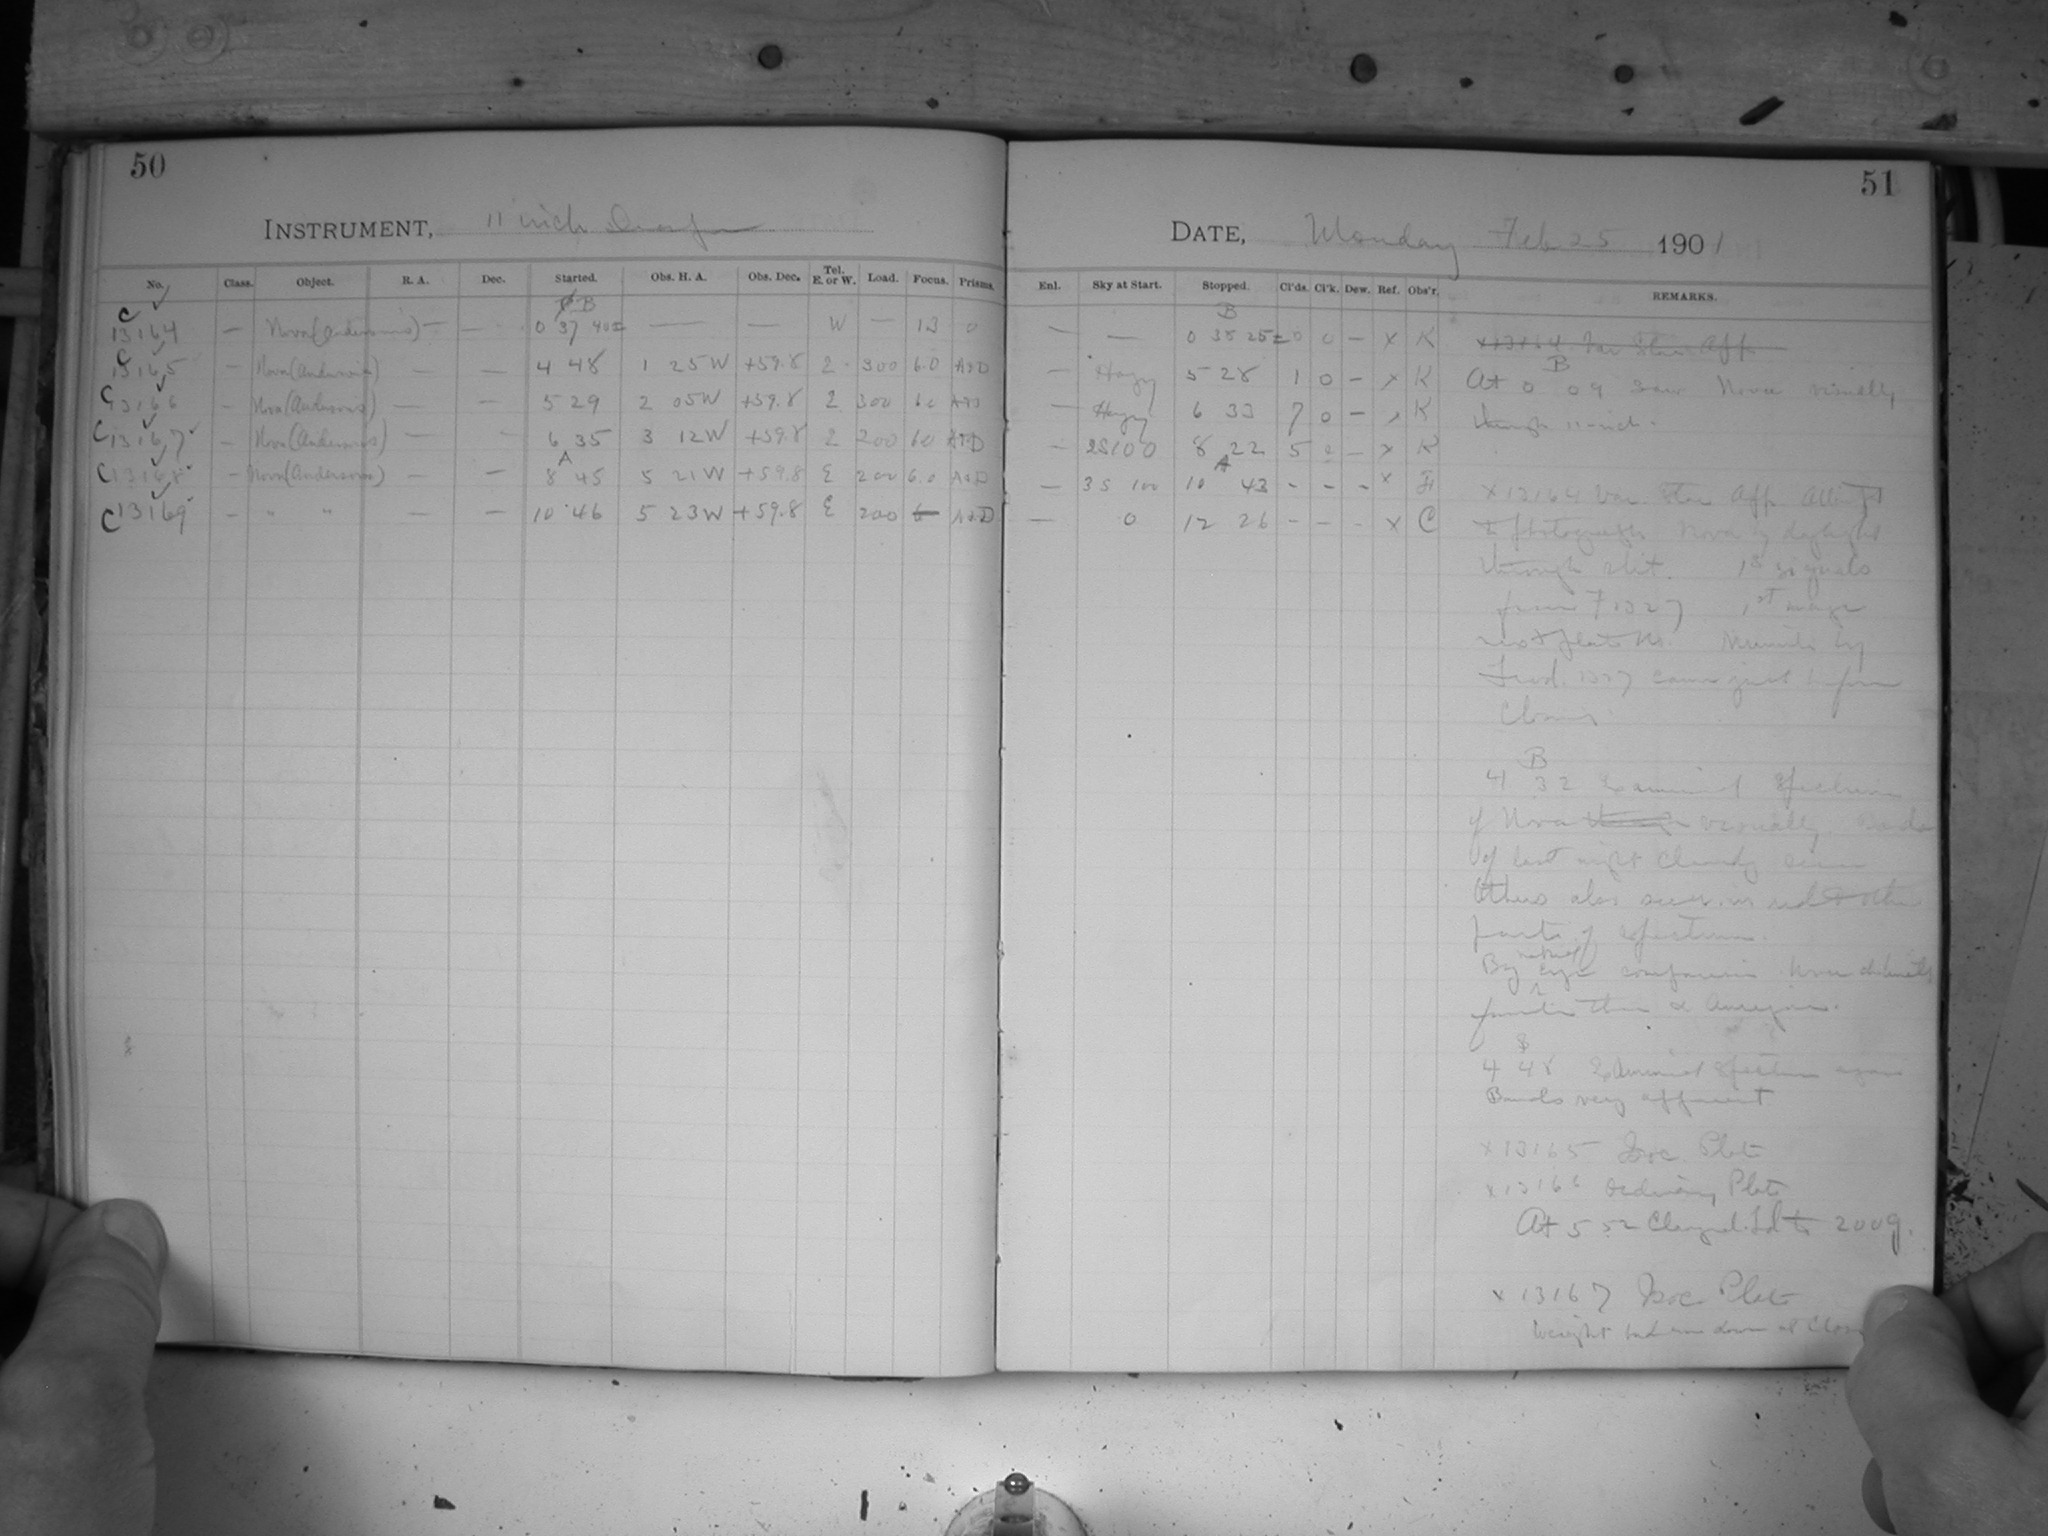 50
INSTRUMENT, 11 inch Draper
No. Class. Object. R. A. Dec. Started. Obs. H. A. Obs. Dec. Tel. E. or W. Load. Focus. Prisms.
B
C 13164 — Nova (Anderson's) — — 0 37 40± — — W — 13 0
C 13165 — Nova (Anderson's) — — 4 48 1 25 W +59.8 E 300 6.0 A+D
C 13166 — Nova (Anderson's) — — 5 29 2 05 W +59.8 E 300 6.0 A+D
C 13167 — Nova (Anderson's) — — 6 35 3 12 W +59.8 E 200 6.0 A+D
A
C 13168 — Nova (Anderson's) — — 8 45 5 21 W +59.8 E 200 6.0 A+D
C 13169 — " " — — 10 46 5 23 W +59.8 E 200 6 A+D
51
DATE, Monday Feb 25 1901
Enl. Sky at Start. Stopped. Cl'ds. Cl'k. Dew. Ref. Obs'r. REMARKS.
B
— — 0 38 25± 0 0 — x K
— Hazy 5 28 1 0 — x K
— Hazy 6 33 7 0 — x K
— 2S100 8 22 5 — x K
A
— 3S 100 10 43 - - - x F
— 0 12 26 - - - x C
x13164 Var Star App
B
At 0 09 saw Nova visually
through 11-inch.
x13164 Var. Star App. Attempt
to photograph Nova by daylight
through slit. 1st signals
from F 1327 1st
not plate No.
1327 came just before
Closing.
B
4 32 Examined Spectrum
of Nova visually Bands
of last night Clearly seen
Others also seen in red & other
parts of spectrum.
By naked eye comparison Nova distinctly
fainter than α Aurigae.
4 48 Examined Spectrum again
Bands very apparent
x13165 Isoc. Plate
x13166 Ordinary Plate
At 5 52 Changed Ld to 200g.
x13167 Isoc Plate
Weight had run down at Close